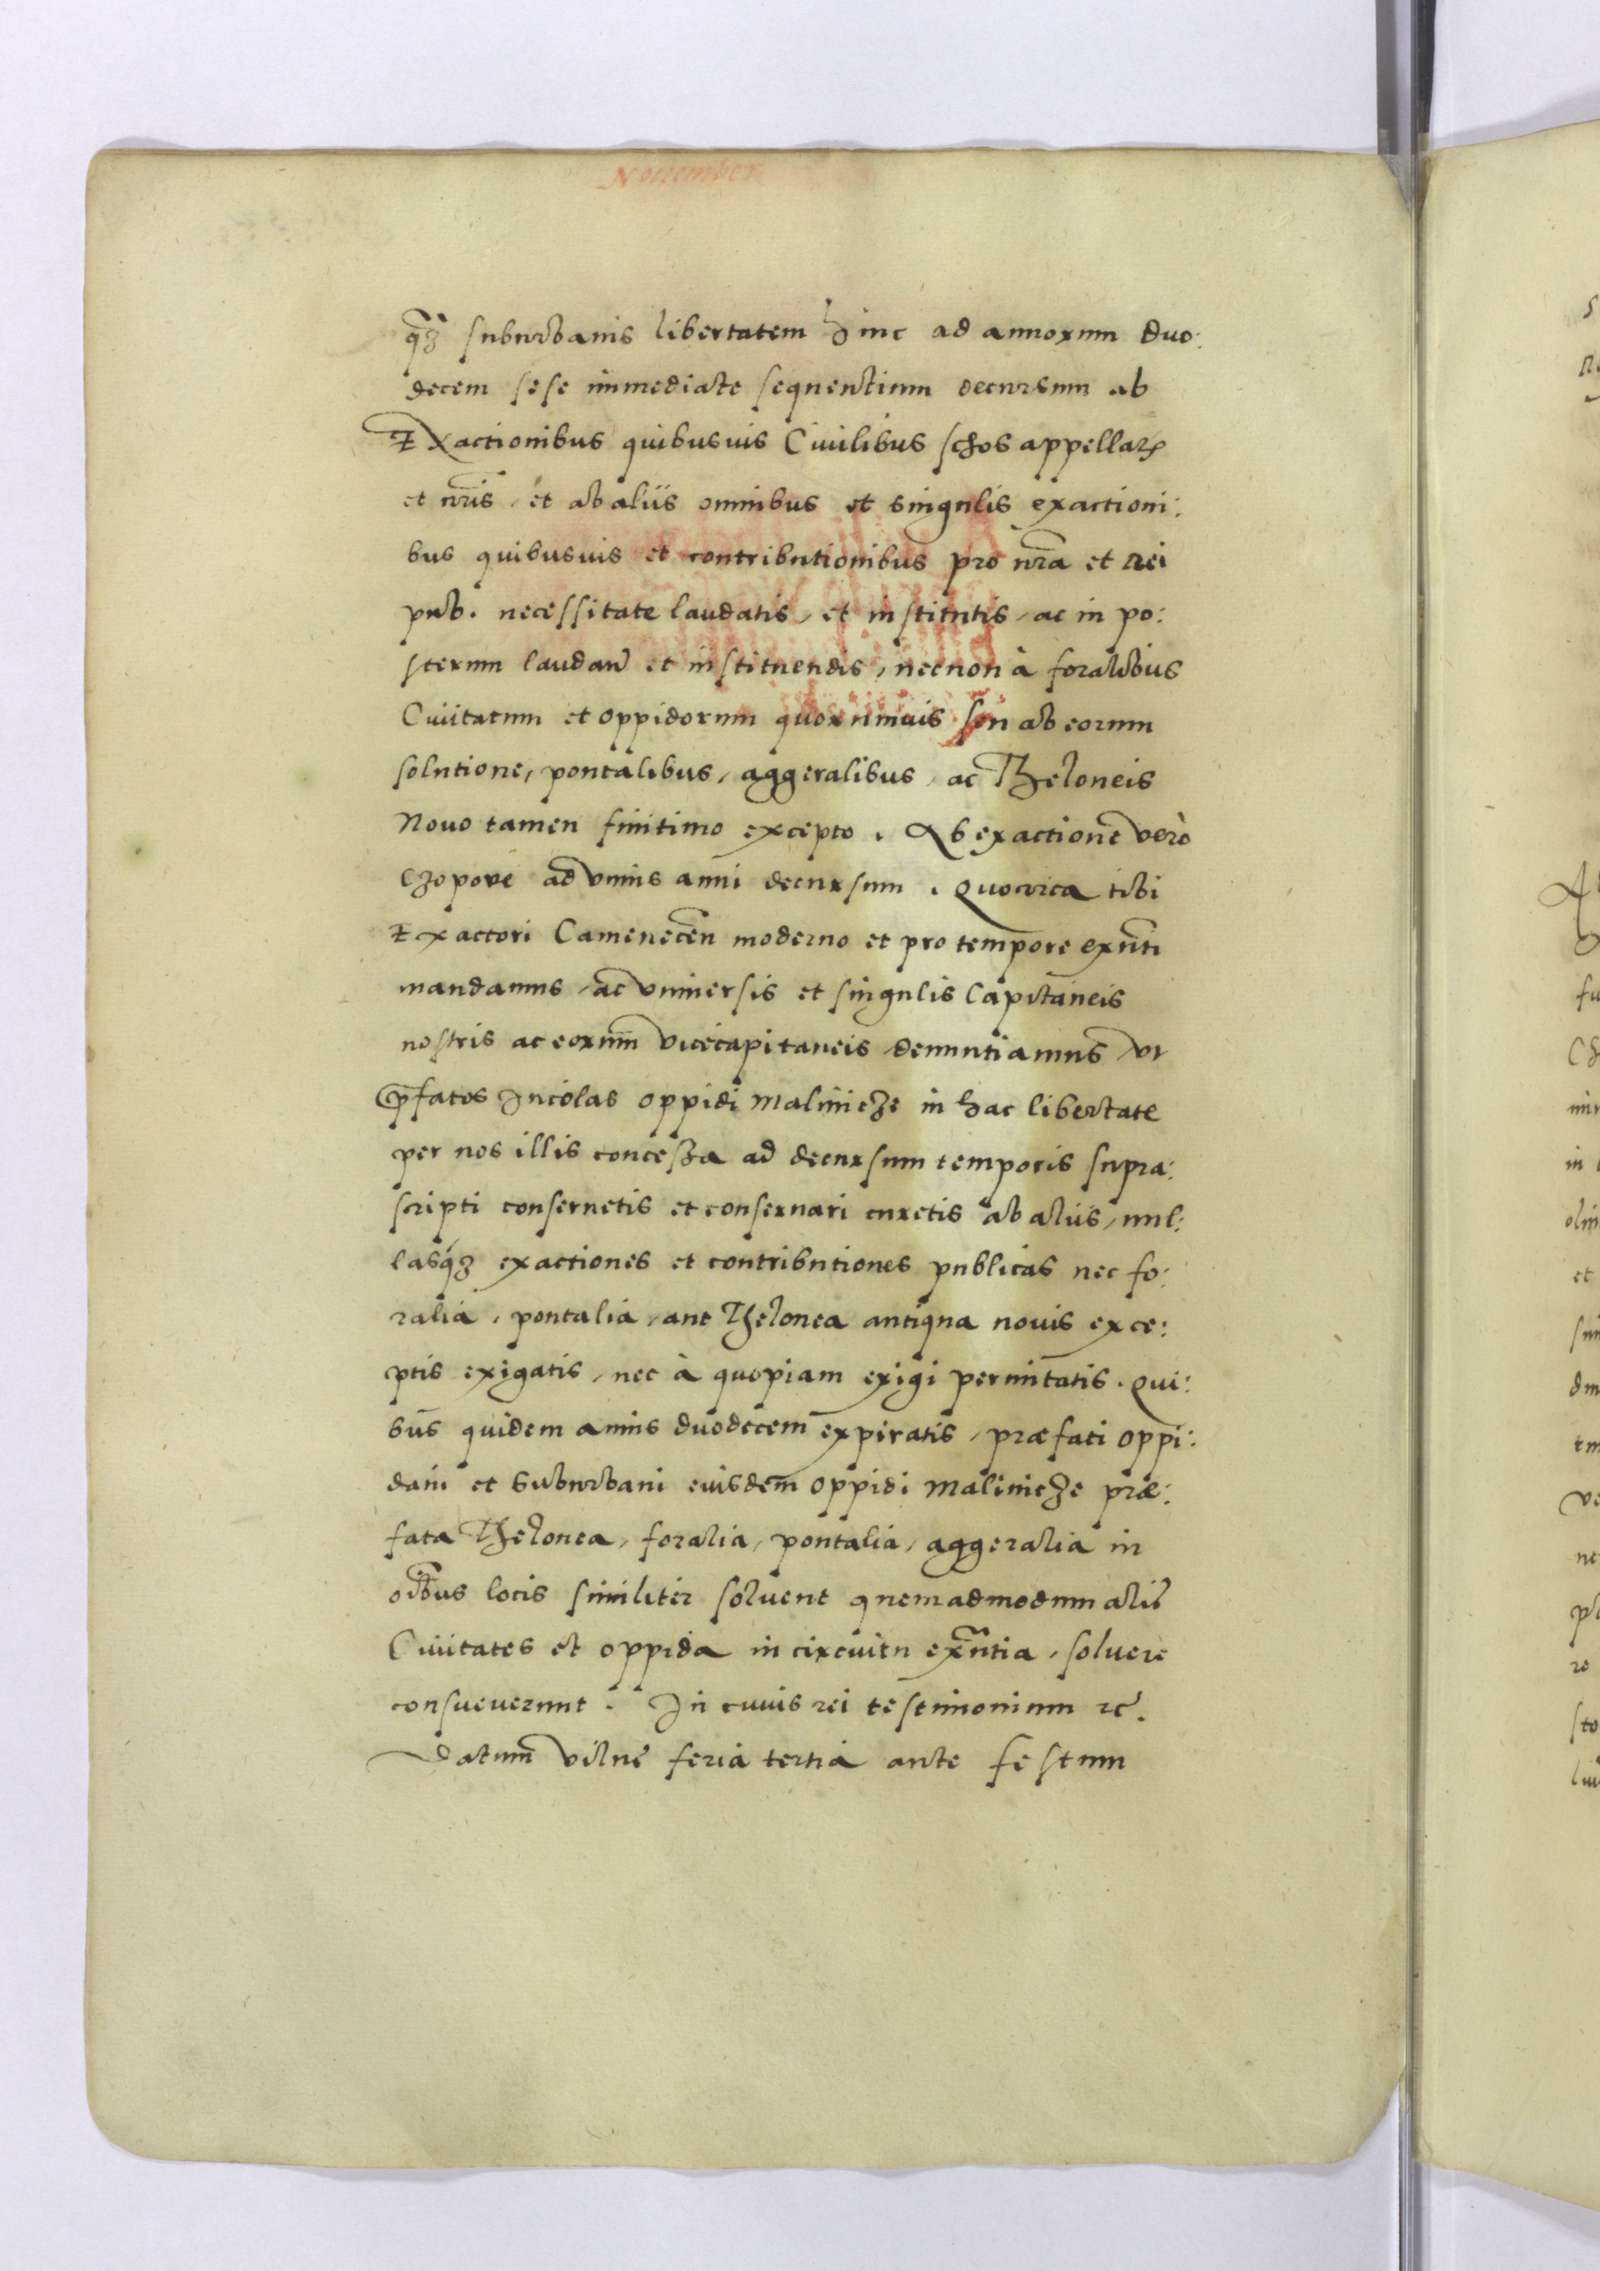 November
q̃ꝫ suburbanis libertatem hinc ad annorum duo:
decem sese immediate sequentium decursum ab
Exactionibus quibusuis Ciuilibus schos appellat
et nr̃is, et ab aliis omnibus et singulis exactioni:
bus quibusuis et contributionibus pro nr̃a et Rei
pub. necessitate laudatis, et institutis, ac in po:
sterum laudan̄ et instituendis, necnon à foralibus
Ciuitatum et oppidorum quorumuis seu ab eorum
solutione, pontalibus, aggeralibus, ac Theloneis
Nouo tamen finitimo excepto. Ab exactione verò
Czopowe ad vnius anni decursum. Quocirca tibi
Exactori Camenecen̄ moderno et pro tempore exn̄ti
mandamus, ac vniuersis et singulis Capitaneis
nostris ac eorum vicecapitaneis denuntiamus, vt
p̄fatos Incolas oppidi Malinicze in hac libertate
per nos illis concessa ad decursum temporis supra:
scripti conseruetis et conseruari curetis ab aliis, nul:
lasq́ꝫ exactiones et contributiones publicas nec fo:
ralia, pontalia, aut Thelonea antiqua nouis exce:
ptis exigatis, nec à quopiam exigi permittatis. Qui:
bus quidem annis duodecem expiratis, præfati oppi:
dani et Suburbani eiusdem oppidi Malinicze præ:
fata Thelonea, foralia, pontalia, aggeralia in
oĩbus locis similiter soluent quemadmodum aliȩ
Ciuitates et oppida in circuitu exñtia, soluere
consueuerunt. In cuius rei testimonium ꝛc̃.
Datum vilnȩ feria tertia ante festum